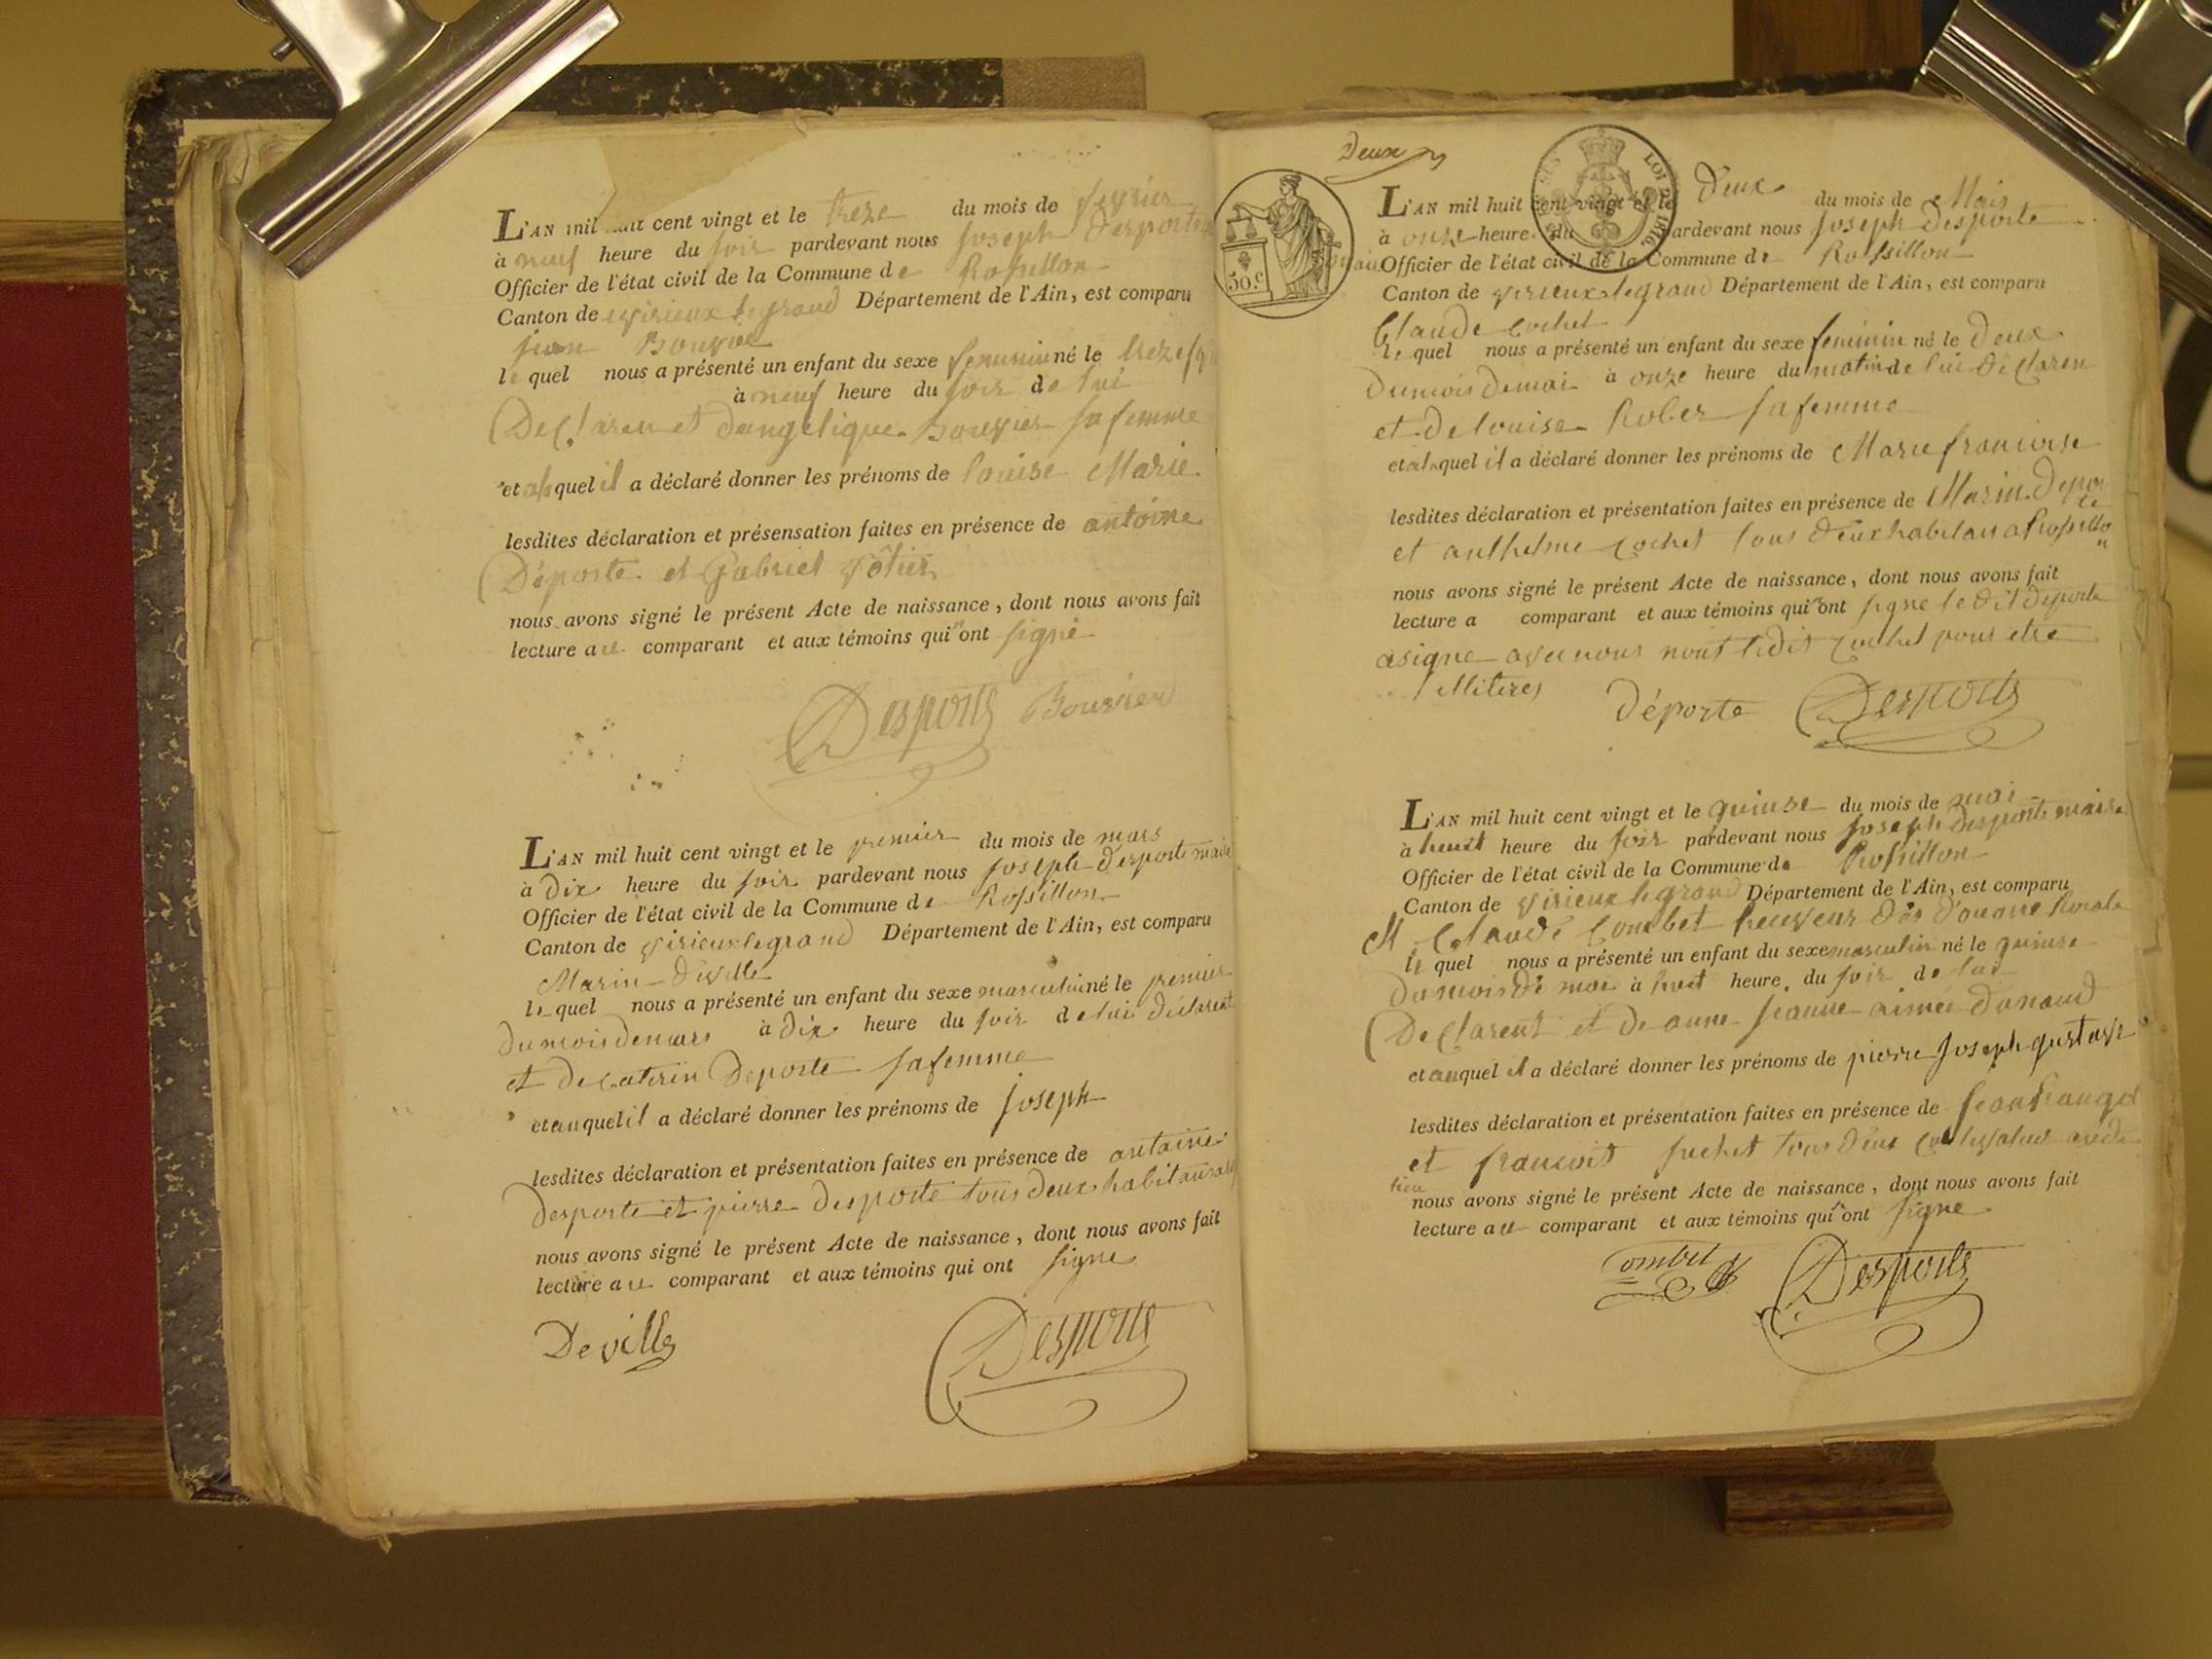 L'AN mil huit cent vingt et le treze du mois de fevrier
à neuf heure du soir pardevant nous joseph Desporte
Officier de l'état civil de la Commune de Rossillon
Canton de virieux legrand Département de l'Ain, est comparu
le quel nous a présenté un enfant du sexe feminin né le treze
à neuf heure du soir de lui
Declaren et dangelique Bouvier sa femme
et quel il a déclaré donner les prénoms de louise Marie
lesdites déclaration et présensation faites en présence de antoine
Déporte et Gabriel
nous avons signé le présent Acte de naissance, dont nous avons fait
lecture au comparant et aux témoins qui n'ont signé
Desporte Bouvier
L'AN mil huit cent vingt et le premier du mois de mars
à Dix heure du soir pardevant nous joseph desporte maire
Officier de l'état civil de la Commune de Rossillon
Canton de virieux legrand Département de l'Ain, est comparu
Marin Deville
le quel nous a présenté un enfant du sexe masculin né le premier
du mois de mars à Dix heure du soir de lui déclarent
et de caterin Deporte sa femme
et auquel il a déclaré donner les prénoms de joseph
lesdites déclaration et présentation faites en présence de antoine
desporte et pierre desporte tous deux habitans
nous avons signé le présent Acte de naissance, dont nous avons fait
lecture au comparant et aux témoins qui ont signe
Deville Desporte
Deux
50.c
LOI DE 1816.
L'AN mil huit cent vingt et le Deux du mois de Mais
à onze heure du pardevant nous Joseph Desporte
Officier de l'état civil de la Commune de Rossillon
Canton de virieux legrand Département de l'Ain, est comparu
Claude cochet
le quel nous a présenté un enfant du sexe feminin né le Deux
du mois de mai à onze heure du matin de lui déclaren
et de louise Rober sa femme
et quel il a déclaré donner les prénoms de Marie francoise
lesdites déclaration et présentation faites en présence de Marin Deporte
et anthelme cochet tous deux habitan a Rossillon
nous avons signé le présent Acte de naissance, dont nous avons fait
lecture a comparant et aux témoins qui n'ont signe le dit déporte
a signe avec nous nont ledit cochet pour etre
illiteres
Déporte Desporte
L'AN mil huit cent vingt et le quinse du mois de mai
à heuit heure du soir pardevant nous joseph desporte maire
Officier de l'état civil de la Commune de Rossillon
Canton de virieux legrand Département de l'Ain, est comparu
M Claude Combet receveur des douane
le quel nous a présenté un enfant du sexe masculin né le quinse
du mois de mai à huit heure du soir de lui
Declarent et de anne jeanne aimée
et auquel il a déclaré donner les prénoms de pierre joseph gustave
lesdites déclaration et présentation faites en présence de jean
et francoit tous deux
lieu
nous avons signé le présent Acte de naissance, dont nous avons fait
lecture au comparant et aux témoins qui n'ont signe
Combet Desporte